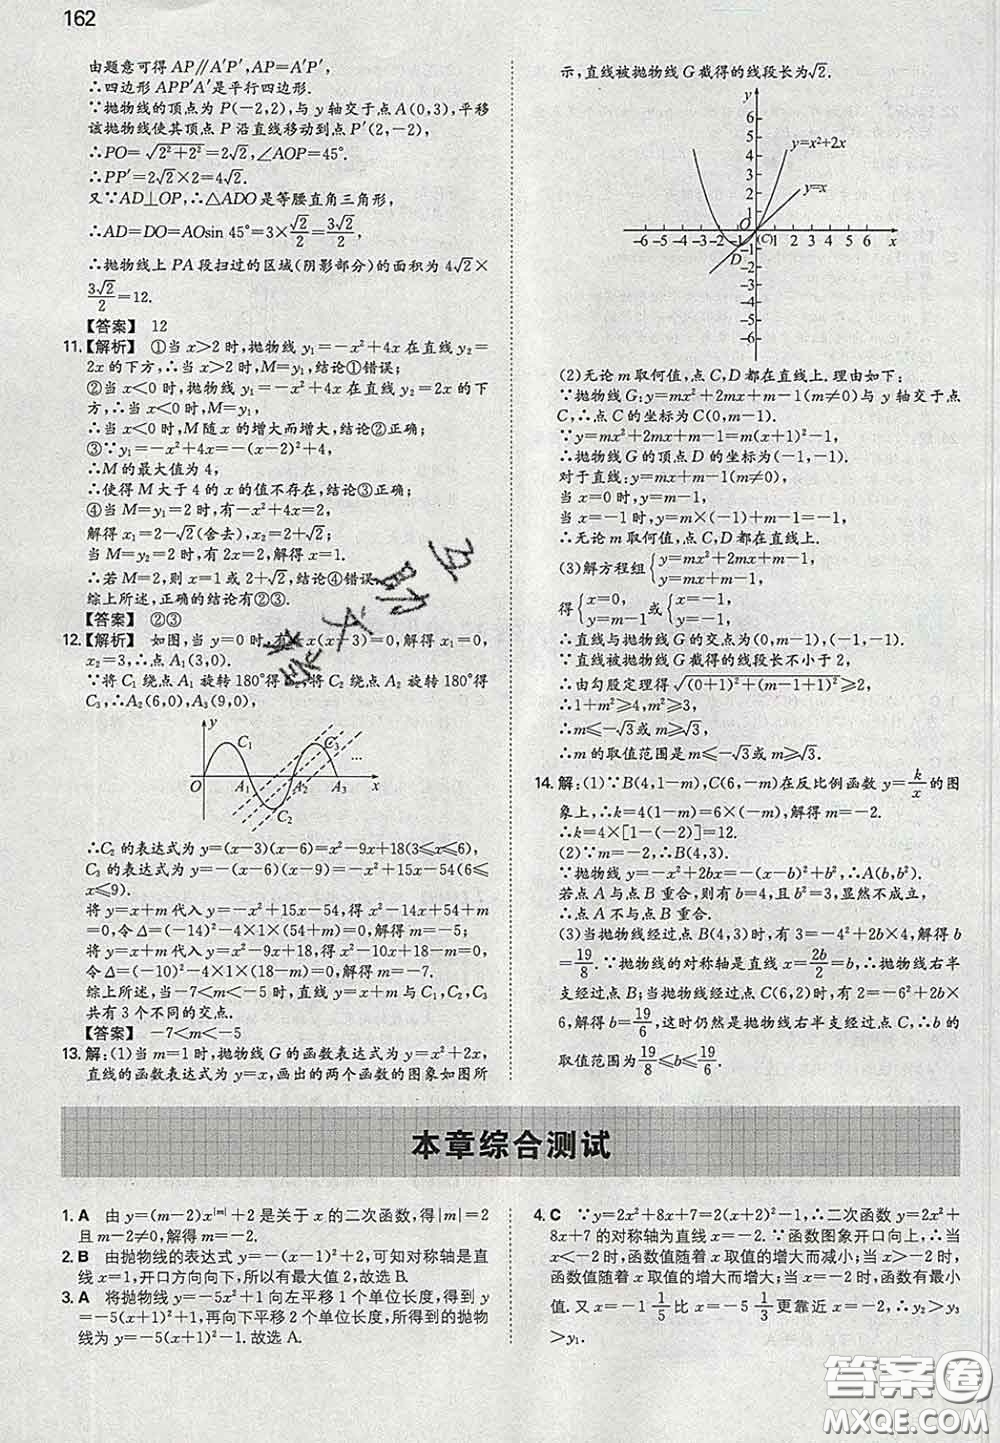 162
由题意可得 AP∥A′P′,AP=A′P′,
∴四边形 APP′A′是平行四边形.
∵抛物线的顶点为 P(-2,2),与 y 轴交于点 A(0,3),平移
该抛物线使其顶点 P 沿直线移动到点 P′(2,-2),
∴PO=√(2²+2²)=2√2,∠AOP=45°.
∴PP′=2√2×2=4√2.
又∵AD⊥OP,∴△ADO 是等腰直角三角形,
∴AD=DO=AOsin 45°=3×√2/2=3√2/2.
∴抛物线上 PA 段扫过的区域(阴影部分)的面积为 4√2×
3√2/2=12.
【答案】 12
11.【解析】 ①当 x>2 时,抛物线 y₁=-x²+4x 在直线 y₂=
2x 的下方,∴当 x>2 时,M=y₁,结论①错误;
②当 x<0 时,抛物线 y₁=-x²+4x 在直线 y₂=2x 的下
方,∴当 x<0 时,M=y₁,
∴当 x<0 时,M 随 x 的增大而增大,结论②正确;
③∵y₁=-x²+4x=-(x-2)²+4,
∴M 的最大值为 4,
∴使得 M 大于 4 的 x 的值不存在,结论③正确;
④当 M=y₁=2 时,有-x²+4x=2,
解得 x₁=2-√2(舍去),x₂=2+√2;
当 M=y₂=2 时,有 2x=2,解得 x=1.
∴若 M=2,则 x=1 或 2+√2,结论④错误.
综上所述,正确的结论有②③.
【答案】 ②③
12.【解析】 如图,当 y=0 时,有 x(x-3)=0,解得 x₁=0,
x₂=3,∴点 A₁(3,0).
∵将 C₁ 绕点 A₁ 旋转 180°得 C₂,将 C₂ 绕点 A₂ 旋转 180°得
C₃,∴A₂(6,0),A₃(9,0),
y
C₁
C₃
…
O
A₁
A₂
A₃
x
C₂
∴C₂ 的表达式为 y=(x-3)(x-6)=x²-9x+18(3≤x≤6),
C₃ 的表达式为 y=-(x-6)(x-9)=-x²+15x-54(6≤
x≤9).
将 y=x+m 代入 y=-x²+15x-54,得 x²-14x+54+m
=0,令Δ=(-14)²-4×1×(54+m)=0,解得 m=-5;
将 y=x+m 代入 y=x²-9x+18,得 x²-10x+18-m=0,
令Δ=(-10)²-4×1×(18-m)=0,解得 m=-7.
综上所述,当-7<m<-5 时,直线 y=x+m 与 C₁、C₂、C₃
共有 3 个不同的交点.
【答案】 -7<m<-5
13.解:(1)当 m=1 时,抛物线 G 的函数表达式为 y=x²+2x,
直线的函数表达式为 y=x,画出的两个函数的图象如图所
示,直线被抛物线 G 截得的线段长为√2.
y
6
5
4
3
2
1
y=x²+2x
y=x
O
-6 -5 -4 -3 -2 -1 (C) 1 2 3 4 5 6 x
D
-1
-2
-3
-4
-5
-6
(2)无论 m 取何值,点 C,D 都在直线上.理由如下:
∵抛物线 G:y=mx²+2mx+m-1(m≠0)与 y 轴交于点
C,∴点 C 的坐标为 C(0,m-1).
∵y=mx²+2mx+m-1=m(x+1)²-1,
∴抛物线 G 的顶点 D 的坐标为(-1,-1).
对于直线:y=mx+m-1(m≠0),
当 x=0 时,y=m-1,
当 x=-1 时,y=m×(-1)+m-1=-1,
∴无论 m 取何值,点 C,D 都在直线上.
(3)解方程组{y=mx²+2mx+m-1, y=mx+m-1,
得{x=0, y=m-1 或{x=-1, y=-1,
∴直线与抛物线 G 的交点为(0,m-1),(-1,-1).
∵直线被抛物线 G 截得的线段长不小于 2,
∴由勾股定理得√((0+1)²+(m-1+1)²)≥2,
∴1+m²≥4,m²≥3,
∴m≤-√3或 m≥√3,
∴m 的取值范围是 m≤-√3或 m≥√3.
14.解:(1)∵B(4,1-m),C(6,-m)在反比例函数 y=k/x 的图
象上,∴k=4(1-m)=6×(-m),解得 m=-2.
∴k=4×[1-(-2)]=12.
(2)∵m=-2,∴B(4,3).
∵抛物线 y=-x²+2bx=-(x-b)²+b²,∴A(b,b²).
若点 A 与点 B 重合,则有 b=4,且 b²=3,显然不成立,
∴点 A 不与点 B 重合.
(3)当抛物线经过点 B(4,3)时,有 3=-4²+2b×4,解得 b
=19/8.∵抛物线的对称轴是直线 x=2b/2=b,∴抛物线右半
支经过点 B;当抛物线经过点 C(6,2)时,有 2=-6²+2b×
6,解得 b=19/6,这时仍然是抛物线右半支经过点 C,∴b 的
取值范围为19/8≤b≤19/6.
本章综合测试
1. A 由 y=(m-2)x^|m|+2 是关于 x 的二次函数,得|m|=2
且 m-2≠0,解得 m=-2.
2. B 由抛物线的表达式 y=-(x-1)²+2,可知对称轴是直
线 x=1,开口方向向下,所以有最大值 2,故选 B.
3. A 将抛物线 y=-5x²+1 向左平移 1 个单位长度,得到 y
=-5(x+1)²+1,再向下平移 2 个单位长度,所得到的抛物
线为 y=-5(x+1)²-1.故选 A.
4. C ∵y=2x²+8x+7=2(x+2)²-1,∴二次函数 y=2x²+
8x+7 的对称轴为直线 x=-2.∵函数图象开口向上,∴当
x<-2 时,函数值随着 x 取值的增大而减小;当 x>-2 时,
函数值随着 x 取值的增大而增大.∵-2<-1 1/5,∴y₂>
y₁.又 x=-1 1/5 比 x=-5 1/3 更靠近 x=-2,∴y₂>y₃
>y₁.
答案圈
MXQE.COM